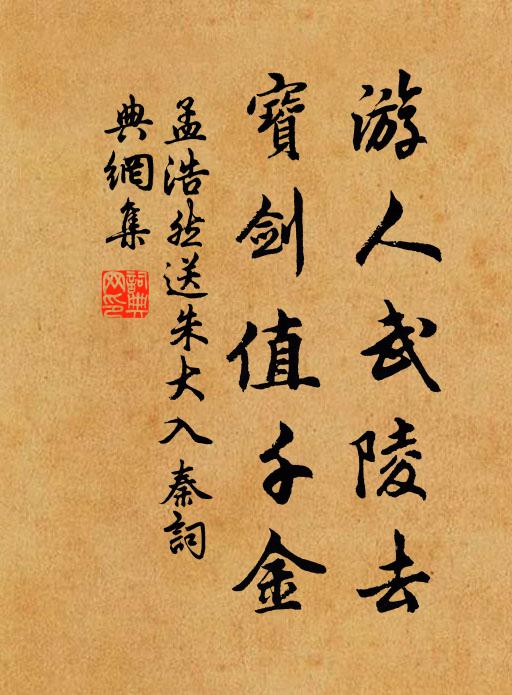 游人武陵去
寶剑值千金
孟浩然送朱大入秦詞
典網集
詞典网印